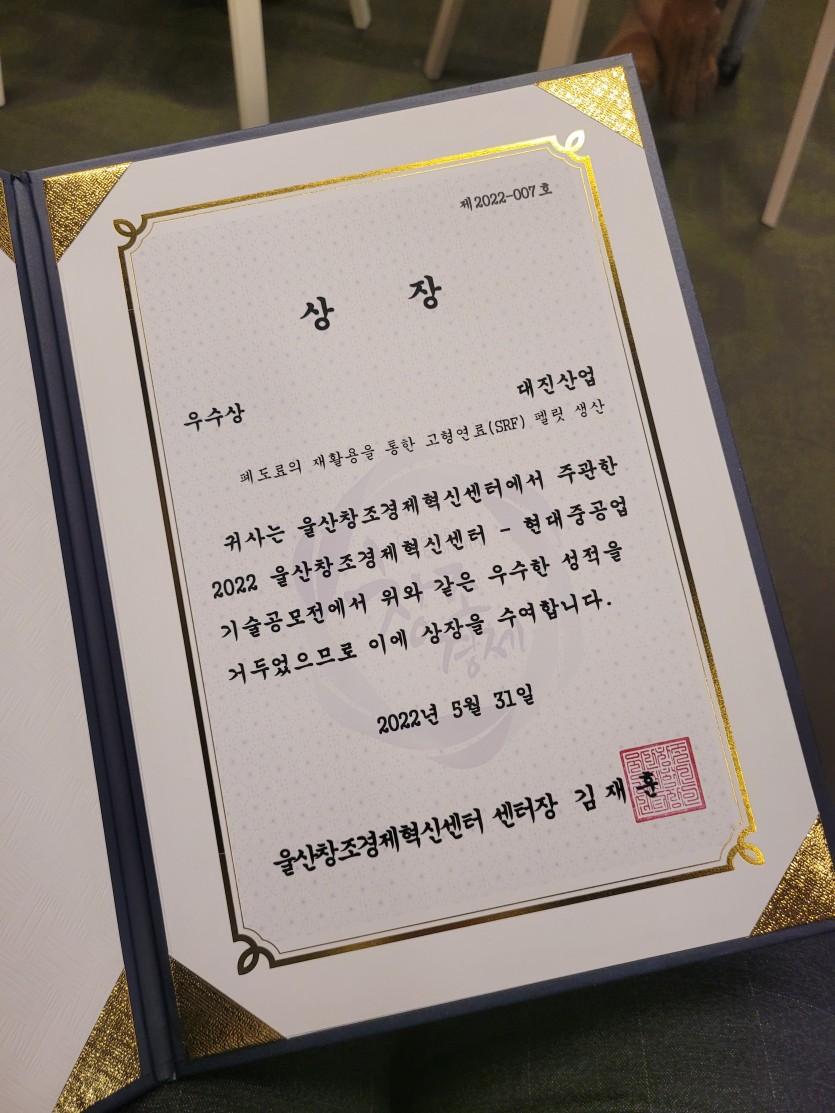 제2022-007호
상 장
우수상
대진산업
폐도료의 재활용을 통한 고형연료(SRF) 펠릿 생산
귀사는 울산창조경제혁신센터에서 주관한
2022 울산창조경제혁신센터 - 현대중공업
기술공모전에서 위와 같은 우수한 성적을
거두었으므로 이에 상장을 수여합니다.
2022년 5월 31일
울산창조경제혁신센터 센터장 김 재 훈